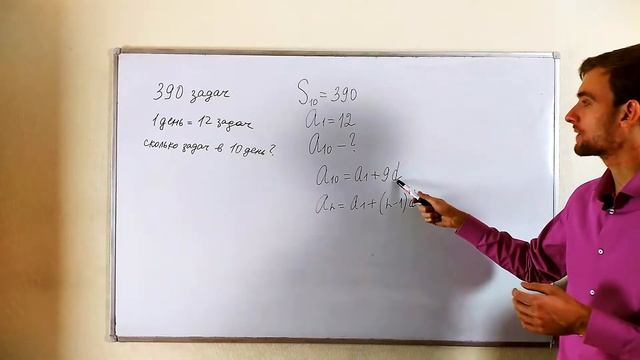 390 задач
1 день = 12 задач
сколько задач в 10 день?
S₁₀ = 390
a₁ = 12
a₁₀ - ?
a₁₀ = a₁ + 9d
aₙ = a₁ + (n-1)d